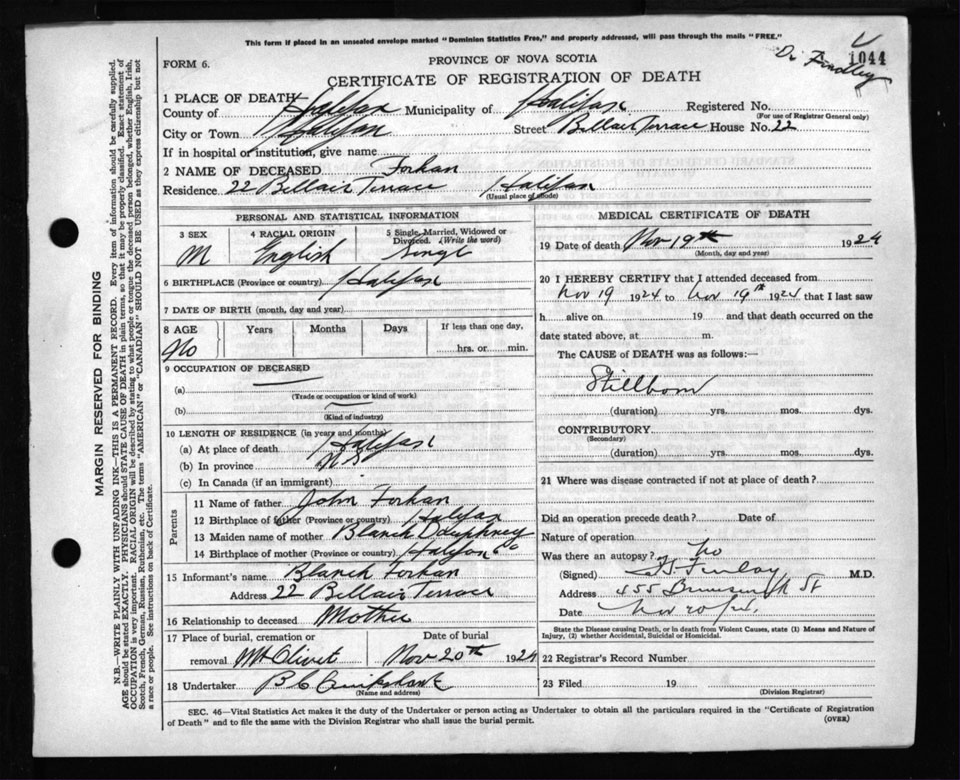 This form if placed in an unsealed envelope marked "Dominion Statistics Free," and properly addressed, will pass through the mails "FREE."
1044
Dr Findley
FORM 6.
PROVINCE OF NOVA SCOTIA
CERTIFICATE OF REGISTRATION OF DEATH
1 PLACE OF DEATH
County of Halifax Municipality of Halifax Registered No.
(For use of Registrar General only)
City or Town Halifax Street Bellair Terrace House No. 22
If in hospital or institution, give name
2 NAME OF DECEASED Forhan
Residence 22 Bellair Terrace Halifax
(Usual place of abode)
PERSONAL AND STATISTICAL INFORMATION
3 SEX 4 RACIAL ORIGIN 5 Single, Married, Widowed or Divorced. (Write the word)
M English Singl
6 BIRTHPLACE (Province or country) Halifax
7 DATE OF BIRTH (month, day and year)
8 AGE Years Months Days If less than one day,
No hrs. or min.
9 OCCUPATION OF DECEASED
(a)
(Trade or occupation or kind of work)
(b)
(Kind of industry)
10 LENGTH OF RESIDENCE (in years and months)
(a) At place of death Halifax
(b) In province N S
(c) In Canada (if an immigrant)
Parents
11 Name of father John Forhan
12 Birthplace of father (Province or country) Halifax
13 Maiden name of mother Blanch Dauphney
14 Birthplace of mother (Province or country) Halifax Co
15 Informant's name Blanch Forhan
Address 22 Bellair Terrace
16 Relationship to deceased Mother
17 Place of burial, cremation or Date of burial
removal Mt Olivet Nov 20th 1924
18 Undertaker B C Cruikshank
(Name and address)
MEDICAL CERTIFICATE OF DEATH
19 Date of death Nov 19th 1924
(Month, day and year)
20 I HEREBY CERTIFY that I attended deceased from
Nov 19 1924 to Nov 19th 1924 that I last saw
h alive on 19 and that death occurred on the
date stated above, at m.
The CAUSE of DEATH was as follows:—
Stillborn
(duration) yrs. mos. dys.
CONTRIBUTORY
(Secondary)
(duration) yrs. mos. dys.
21 Where was disease contracted if not at place of death?
Did an operation precede death? Date of
Nature of operation
Was there an autopsy? No
(Signed) Finlay M.D.
Address 455 Brunswick St
Date Nov 20
State the Disease causing Death, or in death from Violent Causes, state (1) Means and Nature of
Injury, (2) whether Accidental, Suicidal or Homicidal.
22 Registrar's Record Number
23 Filed 19
(Division Registrar)
SEC. 46—Vital Statistics Act makes it the duty of the Undertaker or person acting as Undertaker to obtain all the particulars required in the "Certificate of Registration
of Death" and to file the same with the Division Registrar who shall issue the burial permit.
(OVER)
MARGIN RESERVED FOR BINDING
N.B.—WRITE PLAINLY WITH UNFADING INK—THIS IS A PERMANENT RECORD. Every item of information should be carefully supplied.
AGE should be stated EXACTLY. PHYSICIANS should STATE CAUSE OF DEATH in plain terms, so that it may be properly classified. Exact statement of
OCCUPATION is very important. RACIAL ORIGIN will be described by stating to what people or tongue the deceased person belonged, whether English, Irish,
Scotch, French, German, Russian, Ruthenian, etc. The terms "AMERICAN" or "CANADIAN" SHOULD NOT BE USED as they express citizenship but not
a race or people. See instructions on back of Certificate.